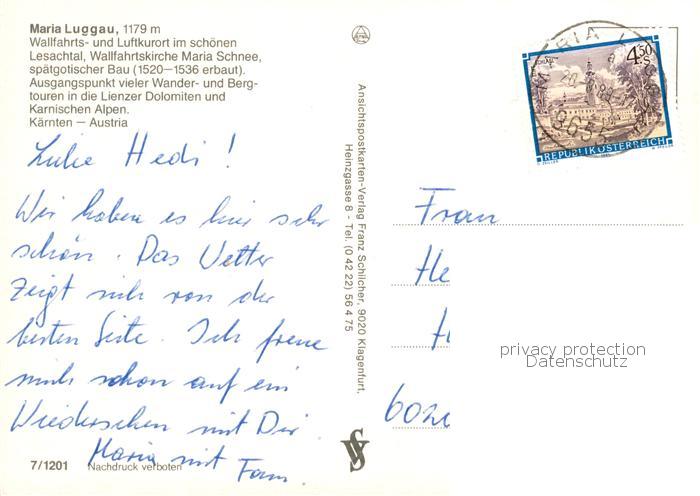 Maria Luggau, 1179 m
Wallfahrts- und Luftkurort im schönen
Lesachtal, Wallfahrtskirche Maria Schnee,
spätgotischer Bau (1520—1536 erbaut).
Ausgangspunkt vieler Wander- und Berg-
touren in die Lienzer Dolomiten und
Karnischen Alpen.
Kärnten — Austria
Liebe Hedi!
Wir haben es hier sehr
schön. Das Wetter
zeigt sich von der
besten Seite. Ich freue
mich schon auf ein
Wiedersehen mit Dir
Maria mit Fam.
7/1201 Nachdruck verboten
Ansichtspostkarten-Verlag Franz Schilcher, 9020 Klagenfurt,
Heinzgasse 6 - Tel. (0 42 22) 56 4 75
MARIA
4.50
S
REPUBLIK ÖSTERREICH
Frau
He
H
602
privacy protection
Datenschutz